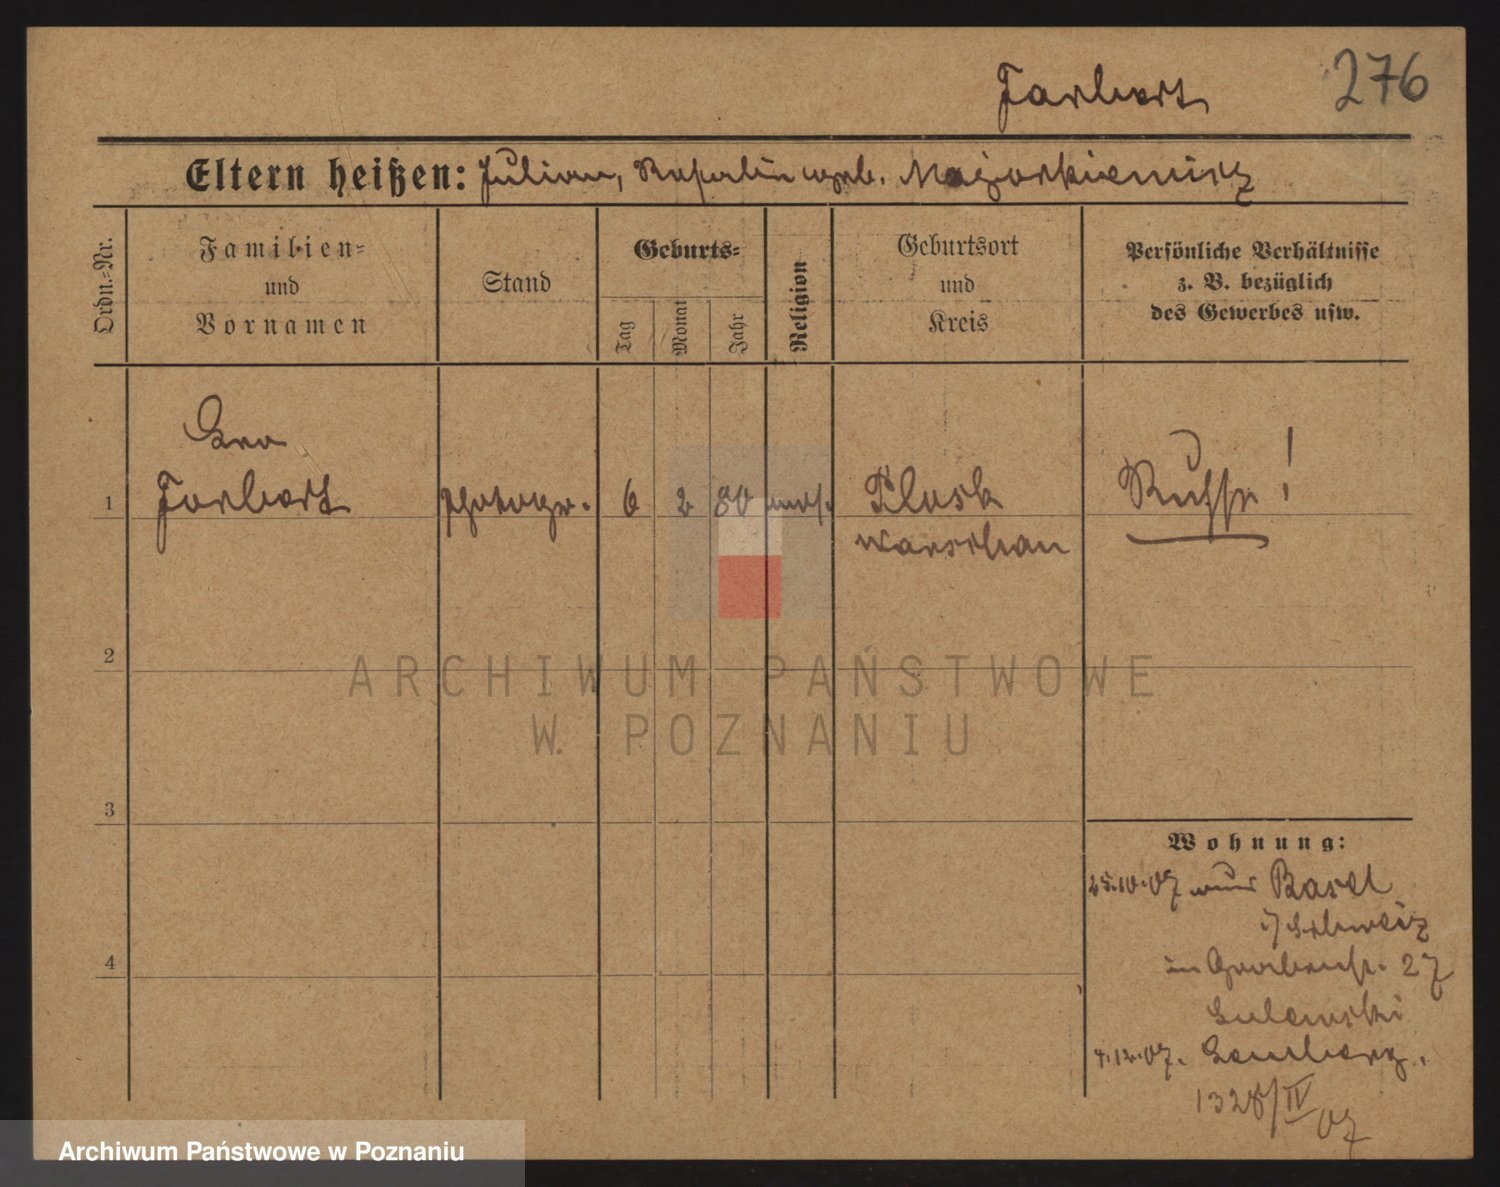 Farbert 276
Eltern heißen: Julian, Rosalie geb. Majorkiewicz
Ordn.-Nr.
Familien-
und
Vornamen
Stand
Geburts-
Tag
Monat
Jahr
Religion
Geburtsort
und
Kreis
Persönliche Verhältnisse
z. B. bezüglich
des Gewerbes usw.
Leo
1 Farbert Photogr. 6 2 80 mos. Plock Russe!
Warschau
2
ARCHIWUM PAŃSTWOWE
W POZNANIU
3
Wohnung:
25.10.07 aus Basel
i/Schweiz
4 27
4.12.07. Lemberg.
1328/IV
07
Archiwum Państwowe w Poznaniu